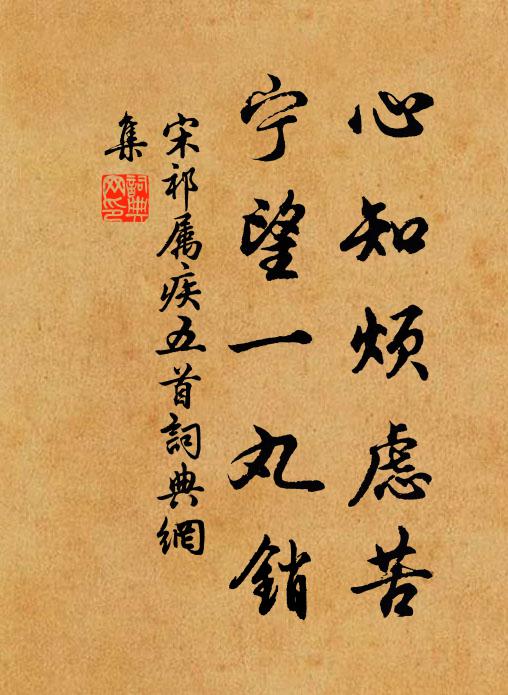 心知烦虑苦
宁望一丸销
宋祁属疾五首詞典網
集
詞典
网印